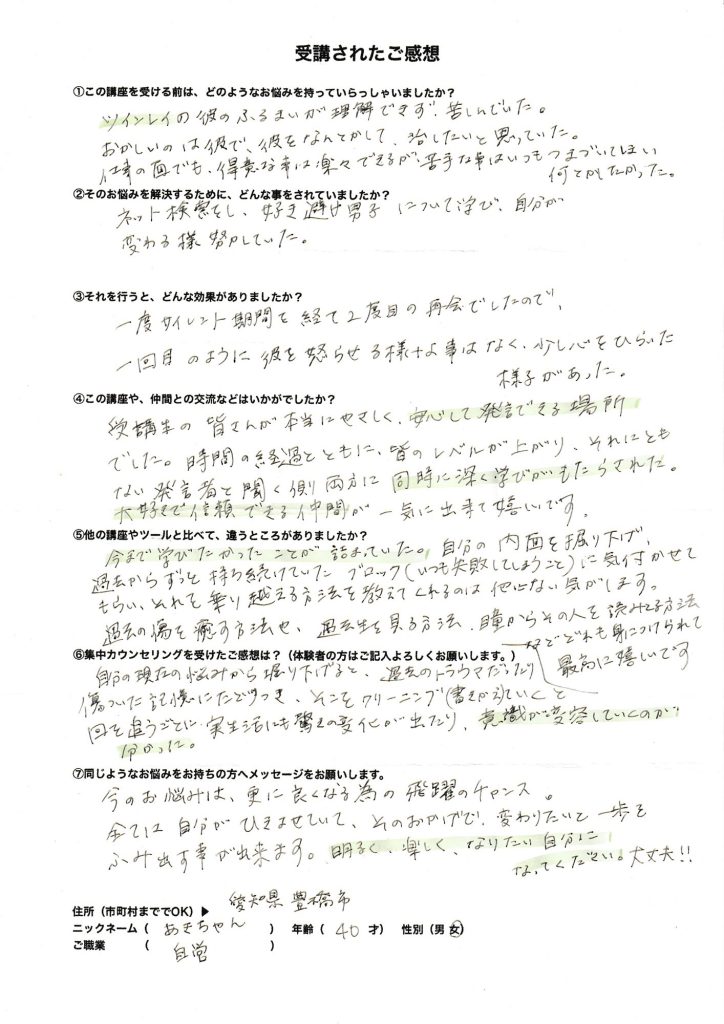 受講されたご感想
①この講座を受ける前は、どのようなお悩みを持っていらっしゃいましたか？
ツインレイの彼のふるまいが理解できず、苦しんでいた。
おかしいのは彼で、彼をなんとかして、治したいと思っていた。
仕事の面でも、得意な事は楽々できるが、苦手な事はいつもつまづいてしまい
何とかしたかった。
②そのお悩みを解決するために、どんな事をされていましたか？
ネット検索をし、好き避け男子について学び、自分が
変わる様努力していた。
③それを行うと、どんな効果がありましたか？
一度サイレント期間を経て2度目の再会でしたので、
一回目のように彼を怒らせる様な事はなく、少し心をひらいた
様子があった。
④この講座や、仲間との交流などはいかがでしたか？
受講生の皆さんが本当にやさしく、安心して発言できる場所
でした。時間の経過とともに、皆のレベルが上がり、それにとも
ない発言者と聞く側両方に同時に深く学びがもたらされた。
大好きで信頼できる仲間が一気に出来て嬉しいです。
⑤他の講座やツールと比べて、違うところがありましたか？
今まで学びたかったことが詰まっていた。自分の内面を掘り下げ、
過去からずっと持ち続けていたブロック(いつも失敗してしまうこと)に気付かせて
もらい、それを乗り越える方法を教えてくれるのは他にない気がします。
過去の傷を癒す方法や、過去生を見る方法、瞳からその人を読みとる方法
などどれも身につけられて
最高に嬉しいです
⑥集中カウンセリングを受けたご感想は？（体験者の方はご記入よろしくお願いします。）
自分の現在の悩みから掘り下げると、過去のトラウマだったり
傷ついた記憶にたどりつき、そこをクリーニング(書きかえ)ていくと
回を追うごとに実生活にも驚きの変化が出たり、意識が変容していくのが
分かった。
⑦同じようなお悩みをお持ちの方へメッセージをお願いします。
今のお悩みは、更に良くなる為の飛躍のチャンス。
全ては自分がひきよせていて、そのおかげで、変わりたいと一歩を
ふみ出す事が出来ます。明るく、楽しく、なりたい自分に
なってください。大丈夫!!
住所（市町村まででOK）▶ 愛知県豊橋市
ニックネーム（ あきちゃん ） 年齢（ 40 才） 性別（男 女）
ご職業 （ 自営 ）